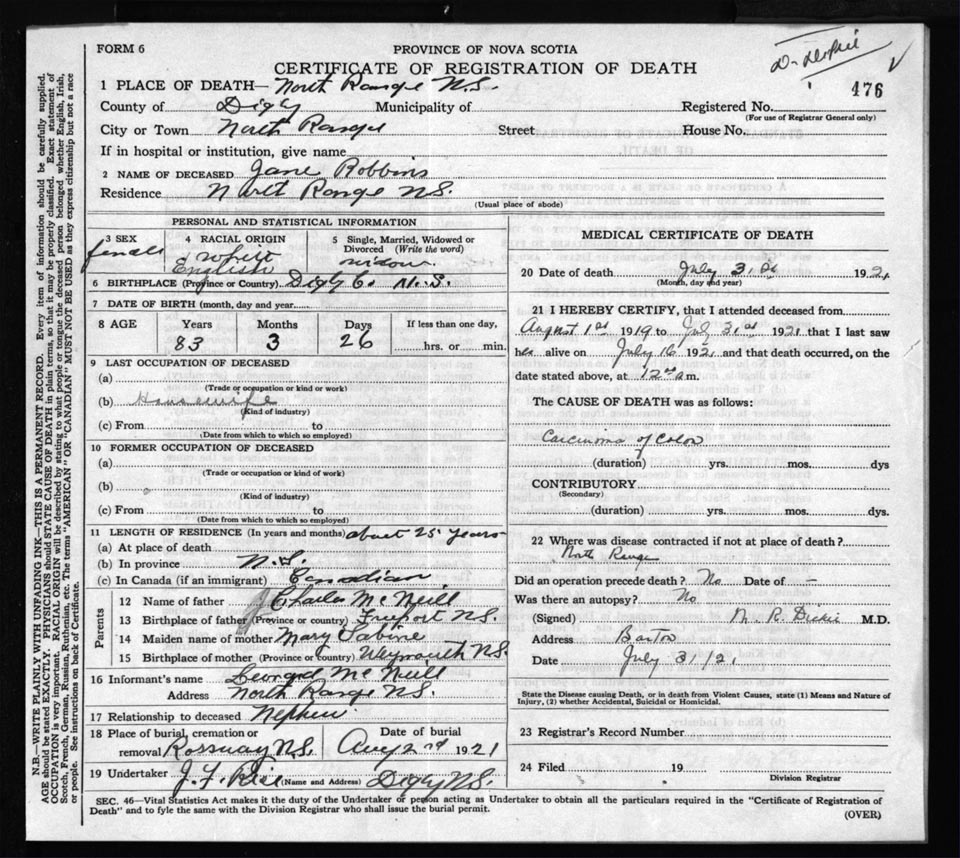 FORM 6
PROVINCE OF NOVA SCOTIA
CERTIFICATE OF REGISTRATION OF DEATH
476
1 PLACE OF DEATH— North Range N.S.
County of Digby Municipality of Registered No.
(For use of Registrar General only)
City or Town North Range Street House No.
If in hospital or institution, give name
2 NAME OF DECEASED Jane Robbins
Residence North Range N.S.
(Usual place of abode)
PERSONAL AND STATISTICAL INFORMATION
3 SEX female
4 RACIAL ORIGIN White English
5 Single, Married, Widowed or Divorced (Write the word) widow
6 BIRTHPLACE (Province or Country) Digby Co. N.S.
7 DATE OF BIRTH (month, day and year)
8 AGE Years Months Days If less than one day,
83 3 26 hrs. or min.
9 LAST OCCUPATION OF DECEASED
(a)
(Trade or occupation or kind or work)
(b) Housewife
(Kind of industry)
(c) From to
(Date from which to which so employed)
10 FORMER OCCUPATION OF DECEASED
(a)
(Trade or occupation or kind of work)
(b)
(Kind of industry)
(c) From to
(Date from which to which so employed)
11 LENGTH OF RESIDENCE (In years and months) about 25 years
(a) At place of death
(b) In province N.S.
(c) In Canada (if an immigrant) Canadian
Parents
12 Name of father J Charles McNeill
13 Birthplace of father (Province or country) Freeport N.S.
14 Maiden name of mother Mary Sabine
15 Birthplace of mother (Province or Country) Weymouth N.S.
16 Informant's name McNeill
Address North Range N.S.
17 Relationship to deceased Nephew
18 Place of burial, cremation or removal Rossway N.S. Date of burial Aug 2nd 1921
19 Undertaker J. F. Rice (Name and Address) Digby N.S.
MEDICAL CERTIFICATE OF DEATH
20 Date of death July 31st 1921
(Month, day and year)
21 I HEREBY CERTIFY, that I attended deceased from
August 1st 1919 to July 31st 1921 that I last saw
her alive on July 16 1921 and that death occurred, on the
date stated above, at 12 a m.
The CAUSE OF DEATH was as follows:
Carcinoma of Colon
(duration) yrs. mos. dys
CONTRIBUTORY
(Secondary)
(duration) yrs. mos. dys.
22 Where was disease contracted if not at place of death?
North Range
Did an operation precede death? No Date of —
Was there an autopsy? No
(Signed) Dickie M.D.
Address Barton
Date July 31/21
State the Disease causing Death, or in death from Violent Causes, state (1) Means and Nature of
Injury, (2) whether Accidental, Suicidal or Homicidal.
23 Registrar's Record Number
24 Filed 19
Division Registrar
SEC. 46—Vital Statistics Act makes it the duty of the Undertaker or person acting as Undertaker to obtain all the particulars required in the "Certificate of Registration of
Death" and to fyle the same with the Division Registrar who shall issue the burial permit.
(OVER)
N.B.—WRITE PLAINLY WITH UNFADING INK—THIS IS A PERMANENT RECORD. Every item of information should be carefully supplied.
AGE should be stated EXACTLY. PHYSICIANS should STATE CAUSE OF DEATH in plain terms, so that it may be properly classified. Exact statement of
OCCUPATION is very important. RACIAL ORIGIN will be described by stating to what people or tongue the deceased person belonged whether English, Irish,
Scotch, French, German, Russian, Ruthenian, etc. The terms "AMERICAN" OR "CANADIAN" MUST NOT BE USED as they express citizenship but not a race
or people. See instructions on back of Certificate.